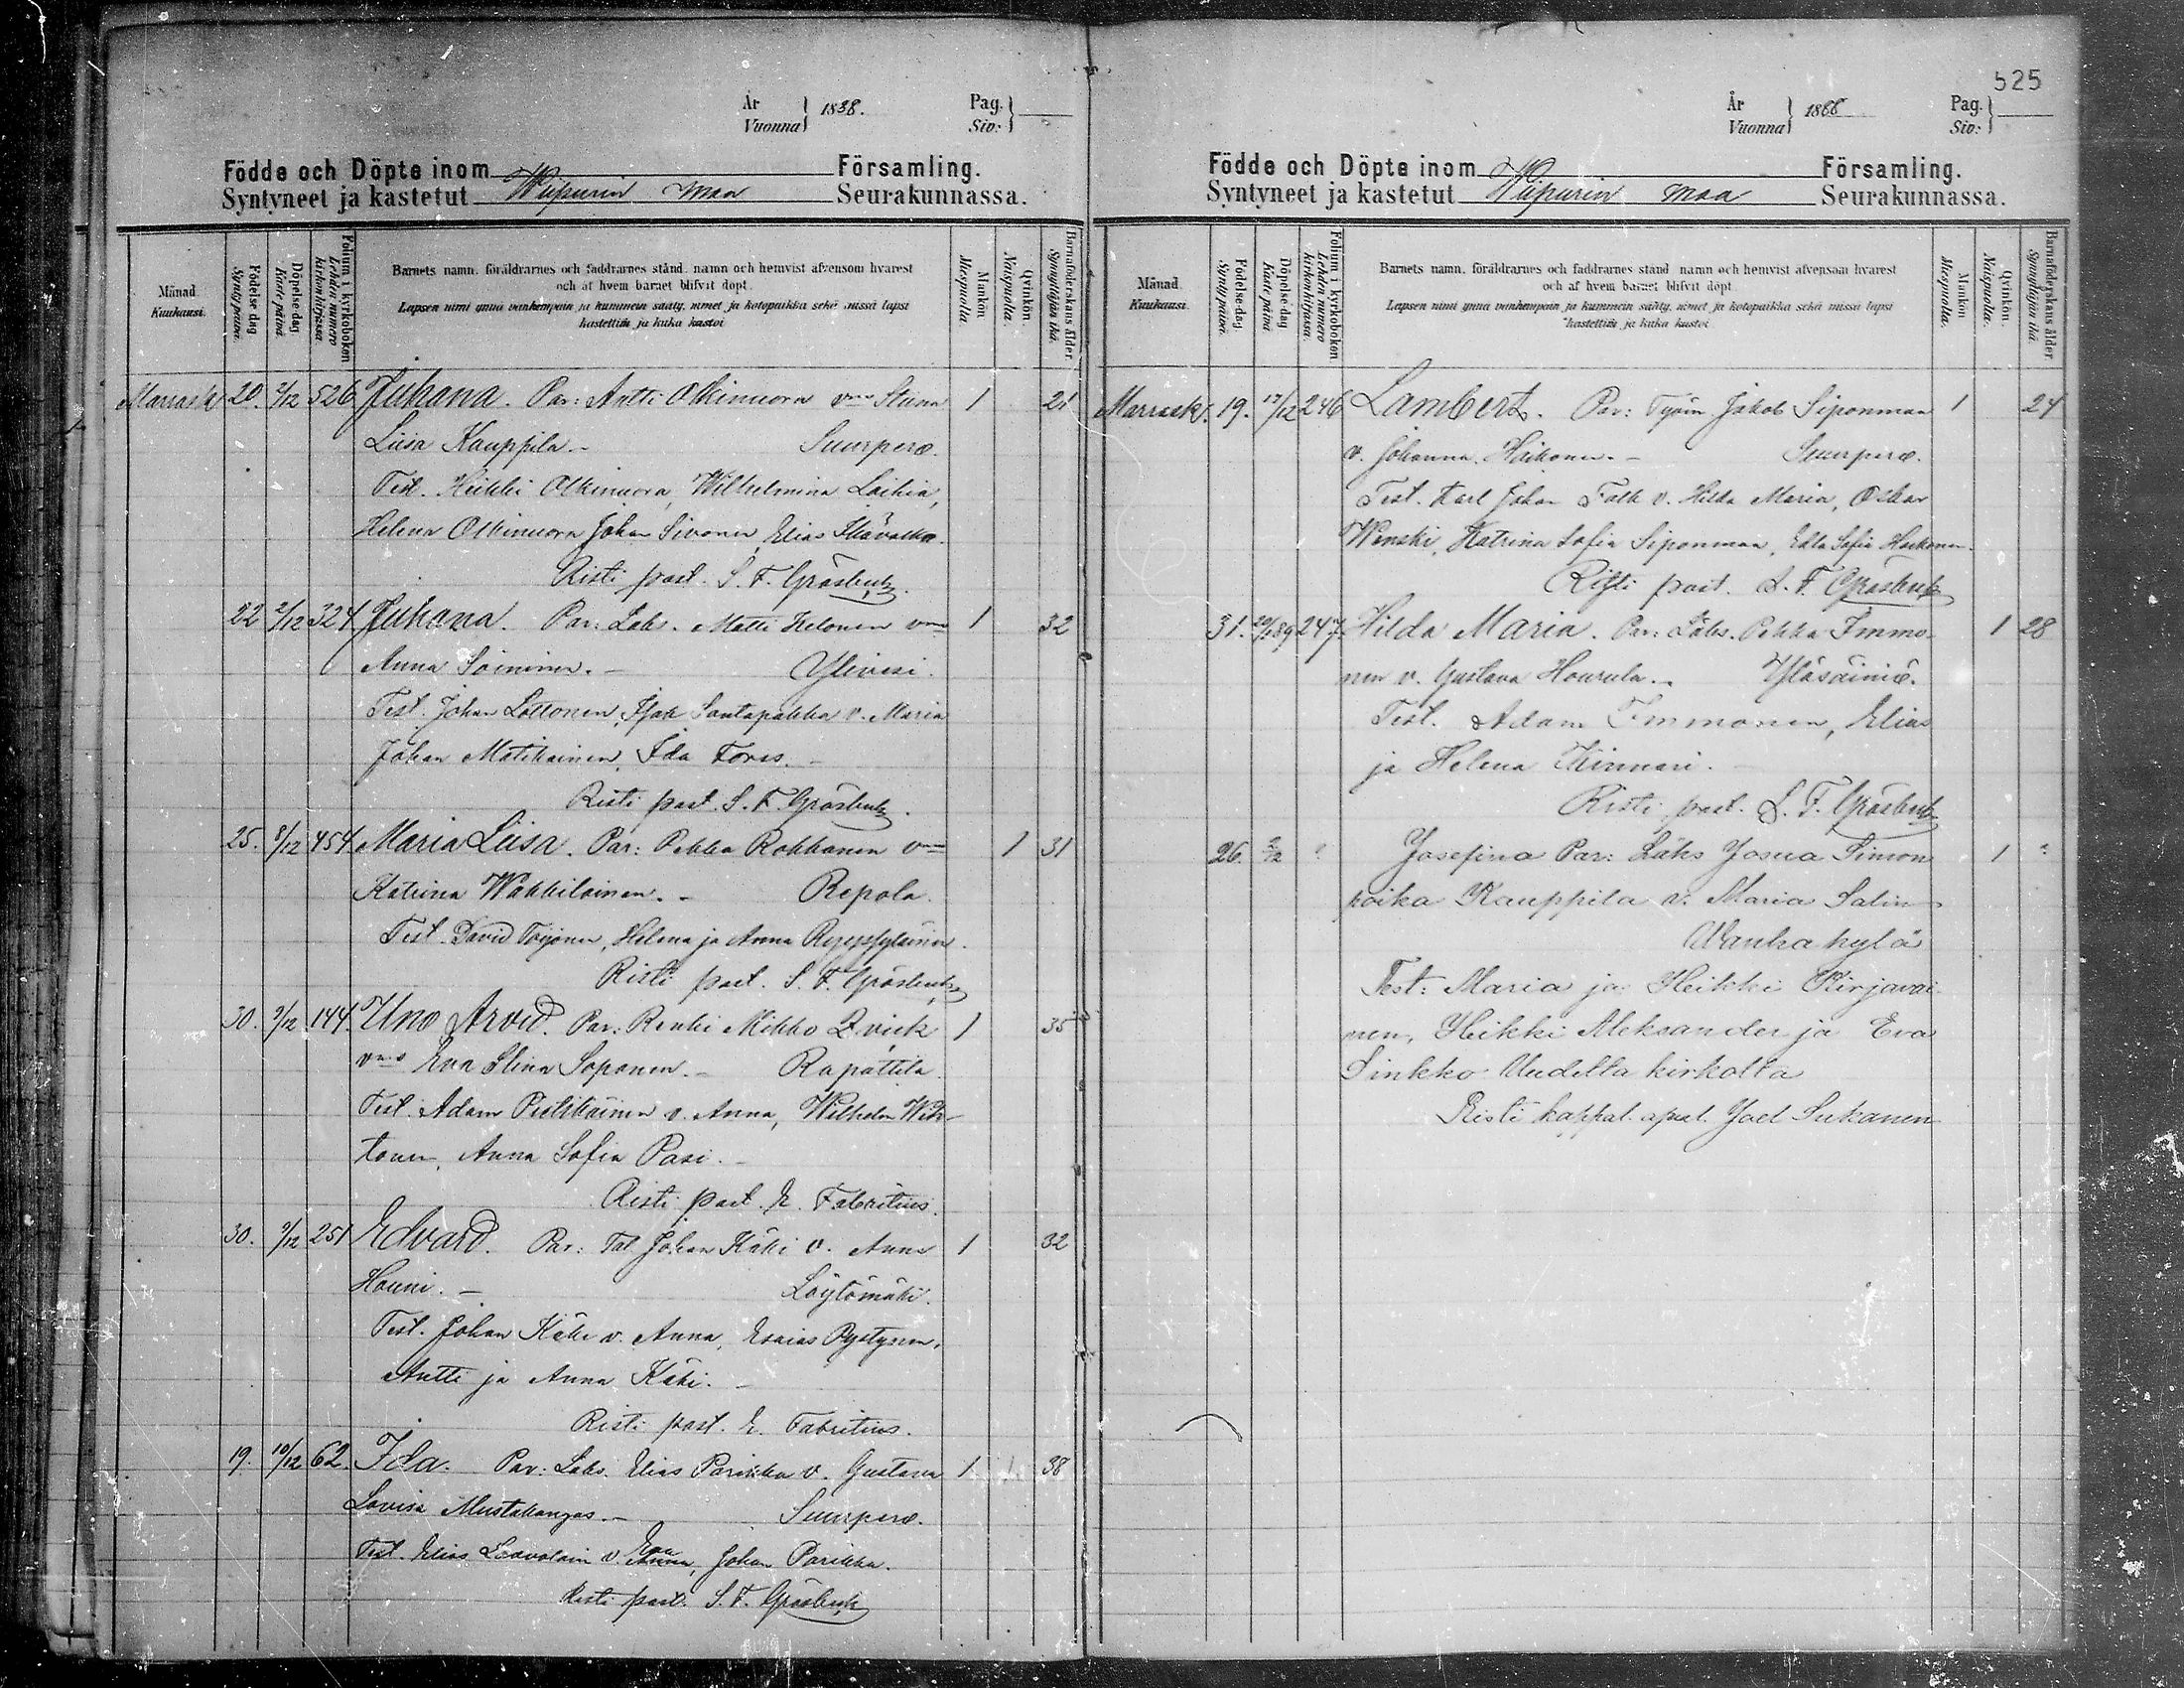 År
Vuonna } 1888.
Pag.
Siv: }
Födde och Döpte inom Församling.
Syntyneet ja kastetut Wiipurin maa Seurakunnassa.
Månad
Kuukausi.
Födelse dag
Syntypäivä.
Döpelse-dag
Kaste päivä
Folium i kyrkoboken
Lehden numero kirkonkirjassa.
Barnets namn, föräldrarnes och faddrarnes stånd, namn och hemvist äfvensom hvarest
och af hvem barnet blifvit döpt.
Lapsen nimi ynnä vanhempain ja kummein sääty, nimet ja kotopaikka sekä missä lapsi
kastettiin ja kuka kastoi
Mankön
Miespuolta
Qvinkön.
Naispuolta.
Barnaföderskans ålder
Synnyttäjän ikä.
Marrask 20. 2/12 526 Juhana. Par: Antti Olkinuora vmo Stiina 1 21
Liisa Kauppila.- Suurperö.
Test. Heikki Olkinuora, Wilhelmina Laikia,
Helena Olkinuora Johan Sivonen, Elias
Risti past. S. F. Gråsbeck.
22 2/12 324 Juhana. Par: Labs. Matti Kelonen vmo 1 32
Anna Soininen.- Ylivesi.
Test. Johan Lottonen, Isak Santapakka v. Maria
Johan Matikainen, Ida Forss.
Risti past. S. F. Gråsbeck.
25. 8/12 454 Maria Liisa. Par: Pekka Rokkanen vmo 1 31
Katrina Wakkilainen.- Repola.
Test. David Toijonen, Helena ja Anna
Risti past. S. F. Gråsbeck
30. 9/12 144 Uno Arvid. Par: Renki Mikko Qvick 1 35
vmo Eva Stina Soponen.- Rapattila.
Test. Adam Pietikäinen v. Anna, Wilhelm Wih-
tonen, Anna Sofia Pasi.-
Risti past. E. Fabritius.
30. 9/12 251 Edvard. Par: Tal. Johan Käki v. Anna 1 32
Houni.- Löytömäki.
Test. Johan Käki v. Anna, Esaias Pystynen,
Antti ja Anna Käki.-
Risti past. E. Fabritius.
19. 10/12 62. Ida. Par: Labs. Elias Parikka v. Gustava 1 38
Lovisa Mustakangas.- Suurperö.
Test. Elias v. Eva, Johan Parikka.
Risti past. S. F. Gråsbeck
525
År
Vuonna } 1888
Pag.
Siv: }
Födde och Döpte inom Församling.
Syntyneet ja kastetut Wiipurin maa Seurakunnassa.
Månad
Kuukausi.
Födelse-dag
Syntypäivä.
Döpelse-dag
Kaste päivä
Folium i kyrkoboken
Lehden numero kirkonkirjassa.
Barnets namn, föräldrarnes och faddrarnes stånd, namn och hemvist äfvensom hvarest
och af hvem barnet blifvit döpt
Lapsen nimi ynnä vanhempain ja kummein sääty, nimet ja kotopaikka sekä missä lapsi
kastettiin ja kuka kastoi
Mankön
Miespuolta.
Qvinkön.
Naispuolta.
Barnaföderskans ålder
Synnyttäjän ikä.
Marrask. 19. 17/12 246 Lambert. Par: Työm. Jakob Siponmaa 1 24
v. Johanna Haikonen.- Suurperö.
Test. Karl Johan Falk v. Hilda Maria, Oskar
Wenski, Katrina Sofia Siponmaa, Edla Sofia Haikonen.
Risti past. S. F. Gråsbeck
31. 20/1 89 247. Hilda Maria. Par: Labs. Pekka Immo- 1 28
nen v. Gustava Hourula.- Yläsäiniö.
Test. Adam Immonen, Elias
ja Helena Kinnari.-
Risti past. S. F. Gråsbeck
26. 2/12 ? Josefina Par: Läks Josua Simon 1 ?
poika Kauppila v. Maria Salin
Wanha kylä
Test: Maria ja Heikki Kirjavai
nen, Heikki Aleksander ja Eva
Sinkko Uudelta kirkolta
Risti kappal. apul. Joel Sukanen